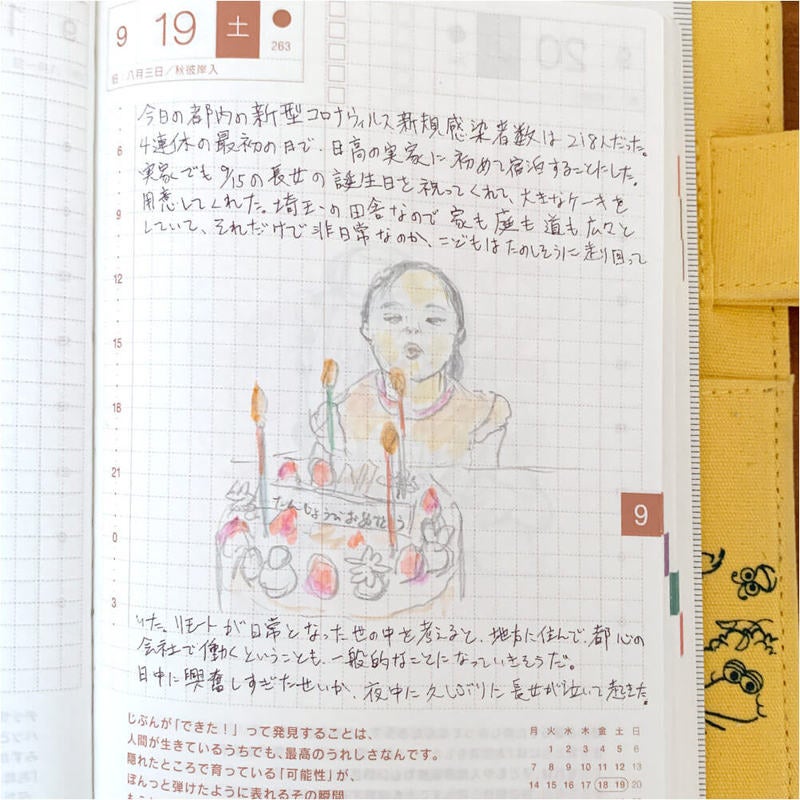 9 19 土
263
旧 八月三日／秋彼岸入
今日の都内の新型コロナウィルス新規感染者数は218人だった。
4連休の最初の日で、日高の実家に初めて宿泊することにした。
実家でも9/15の長女の誕生日を祝ってくれて、大きなケーキを
用意してくれた。埼玉の田舎なので家も庭も道も広々と
していて、それだけで非日常なのか、こどもはたのしそうに走り回って
12
15
18
21
0
3
6
9
たんじょうびおめでとう
9
いた。リモートが日常となった世の中を考えると、地方に住んで、都心の
会社で働くということも、一般的なことになっていきそうだ。
日中に興奮しすぎたせいか、夜中に久しぶりに長女が泣いて起きた。
じぶんが「できた！」って発見することは、
人間が生きているうちでも、最高のうれしさなんです。
隠れたところで育っている「可能性」が、
ぽんっと弾けたように表れるその瞬間
月 火 水 木 金 土 日
1 2 3 4 5 6
7 8 9 10 11 12 13
14 15 16 17 18 19 20